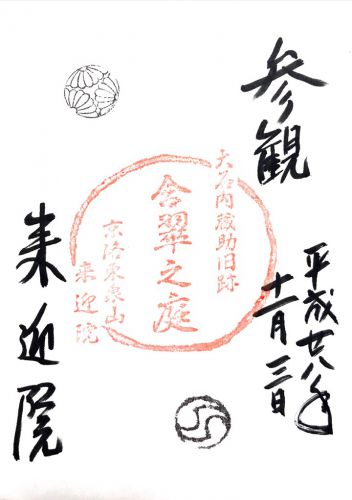 参観
平成廿八年
十一月三日
大石内蔵助旧跡
含翠之庭
京洛東泉山
来迎院
来迎院